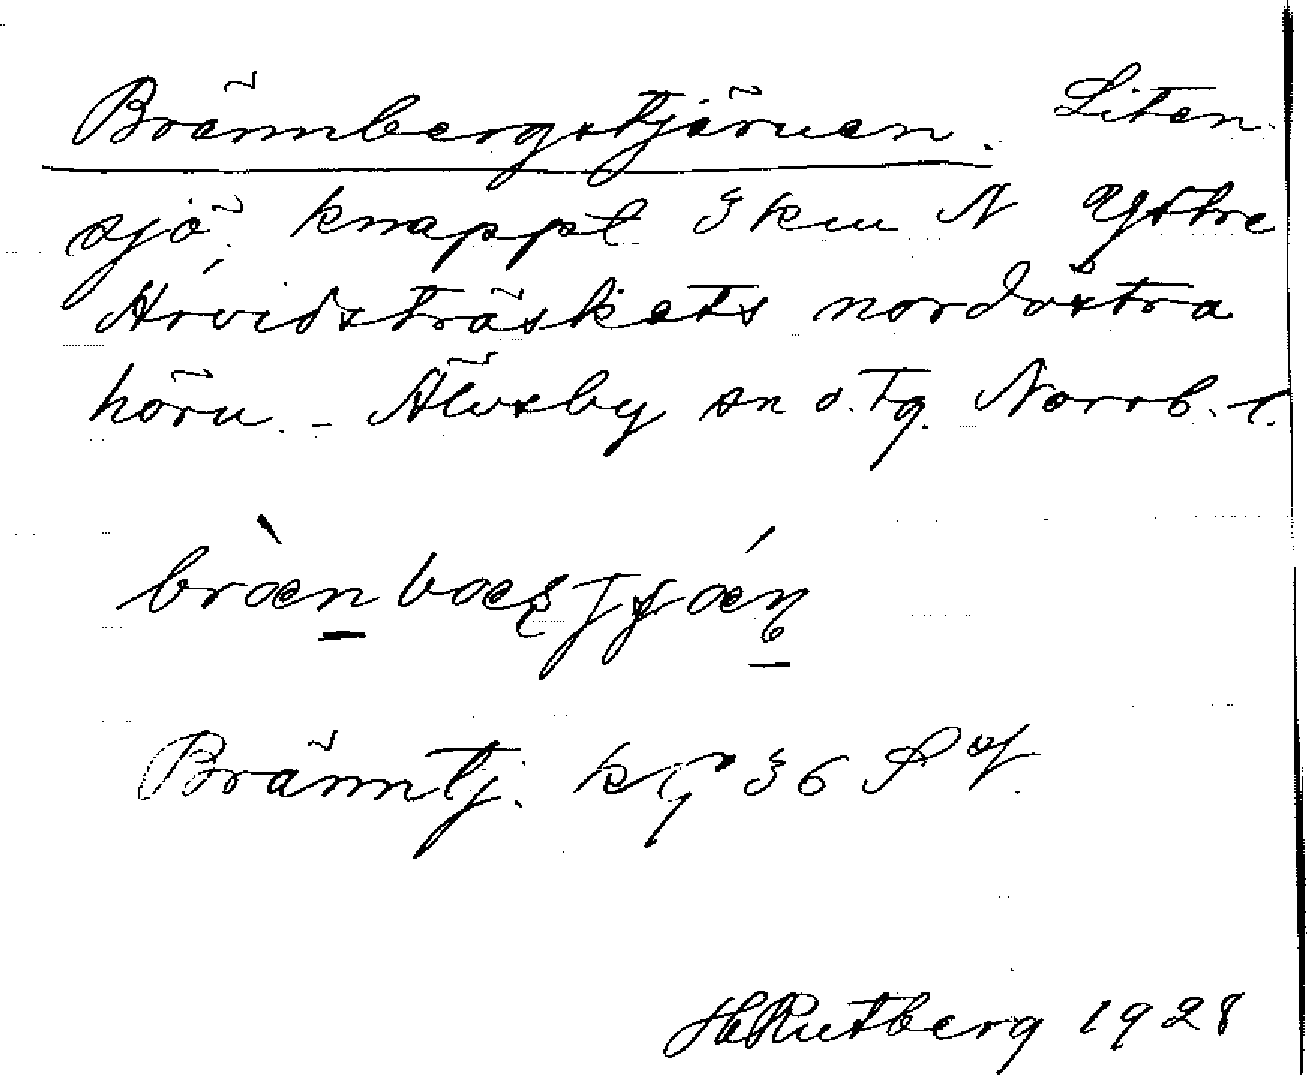 Brännbergstjärnen. Liten
sjö, knappt 3 km N Yttre
Arvidsträskets nordöstra
hörn. - Älvsby sn o. tg. Norrb. l.
Bränntj. kg 36
H Rutberg 1928